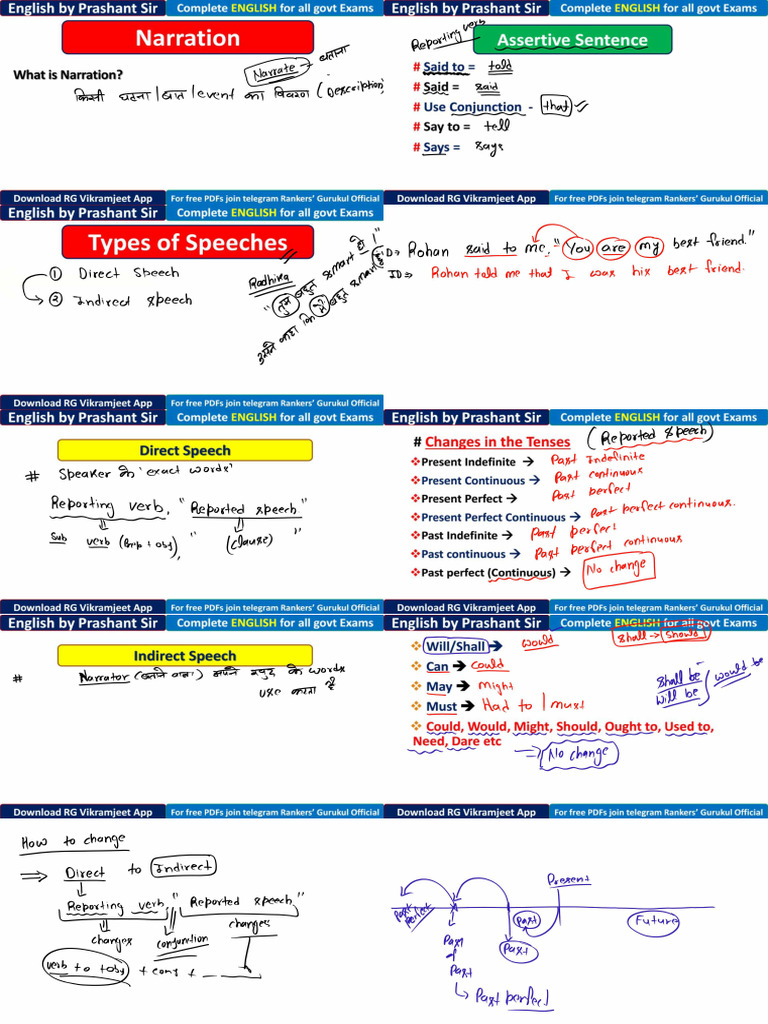 English by Prashant Sir
Complete ENGLISH for all govt Exams
Narration
What is Narration?
Narrate → बताना
किसी घटना/बात/event का विवरण (Description)
Download RG Vikramjeet App
For free PDFs join telegram Rankers' Gurukul Official
English by Prashant Sir
Complete ENGLISH for all govt Exams
Reporting verb
Assertive Sentence
# Said to = told
# Said = said
# Use Conjunction - that ✓
# Say to = tell
# Says = says
Download RG Vikramjeet App
For free PDFs join telegram Rankers' Gurukul Official
English by Prashant Sir
Complete ENGLISH for all govt Exams
Types of Speeches
① Direct Speech
② Indirect speech
Radhika
"तुम बहुत smart हो।"
उसने कहा कि मैं बहुत smart हूँ
Download RG Vikramjeet App
For free PDFs join telegram Rankers' Gurukul Official
D → Rohan said to me, "You are my best friend."
ID ⇒ Rohan told me that I was his best friend.
Download RG Vikramjeet App
For free PDFs join telegram Rankers' Gurukul Official
English by Prashant Sir
Complete ENGLISH for all govt Exams
Direct Speech
# Speaker के 'exact words'
Reporting verb, "Reported speech"
Sub verb (Prep + obj), " (clause) "
Download RG Vikramjeet App
For free PDFs join telegram Rankers' Gurukul Official
English by Prashant Sir
Complete ENGLISH for all govt Exams
# Changes in the Tenses (Reported speech)
Present Indefinite → Past Indefinite
Present Continuous → Past continuous
Present Perfect → Past perfect
Present Perfect Continuous → Past perfect continuous.
Past Indefinite → Past perfect
Past continuous → Past perfect continuous
Past perfect (Continuous) → No change
Download RG Vikramjeet App
For free PDFs join telegram Rankers' Gurukul Official
English by Prashant Sir
Complete ENGLISH for all govt Exams
Indirect Speech
# Narrator (बताने वाला) अपने खुद के words
use करता है
Download RG Vikramjeet App
For free PDFs join telegram Rankers' Gurukul Official
English by Prashant Sir
Complete ENGLISH for all govt Exams
Will/Shall → would
shall → should
Can → could
May → might
Must → Had to / must
shall be
will be
would be
Could, Would, Might, Should, Ought to, Used to,
Need, Dare etc
⇒ No change
Download RG Vikramjeet App
For free PDFs join telegram Rankers' Gurukul Official
How to change
⇒ Direct to Indirect
Reporting verb " Reported speech"
changes
conjunction
changes
verb to + obj + conj +
Present
Past perfect
Past
Past
Future
Past
of
Past
↳ Past perfect